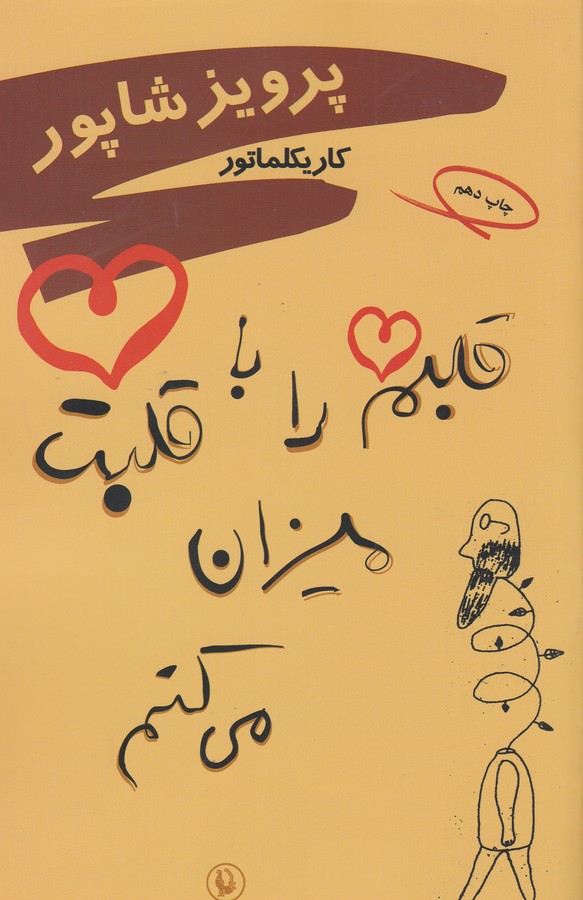 پرویز شاپور
کاریکلماتور
چاپ دهم
قلبم را با قلبت
میزان
می‌کنم